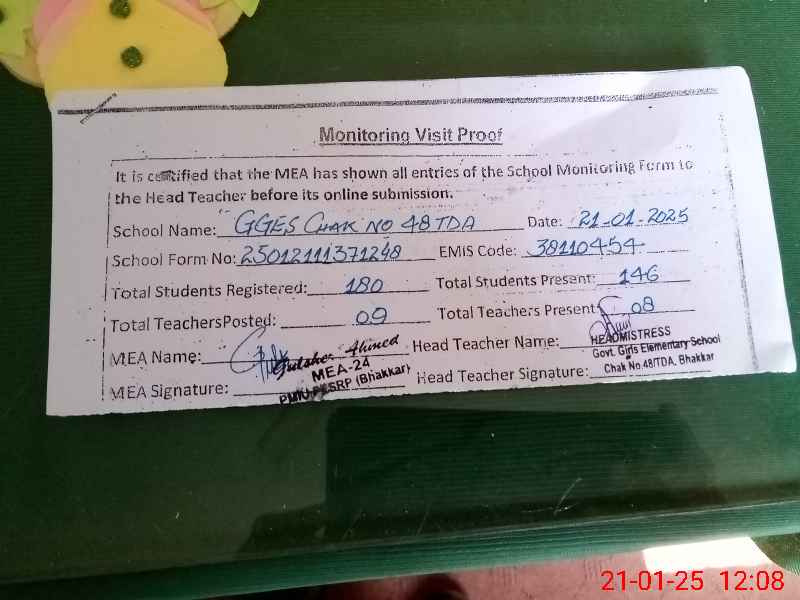 Monitoring Visit Proof
It is certified that the MEA has shown all entries of the School Monitoring Form to
the Head Teacher before its online submission.
School Name: GGES CHAK NO 48 TDA Date: 21-01-2025
School Form No: 25012111371248 EMIS Code: 38110454
Total Students Registered: 180 Total Students Present: 146
Total TeachersPosted: 09 Total Teachers Present: 08
MEA Name: Gulsher Ahmed Head Teacher Name: HEADMISTRESS
MEA-24 Govt. Girls Elementary School
MEA Signature: PMIU-PESRP (Bhakkar) Head Teacher Signature: Chak No.48/TDA, Bhakkar
21-01-25 12:08